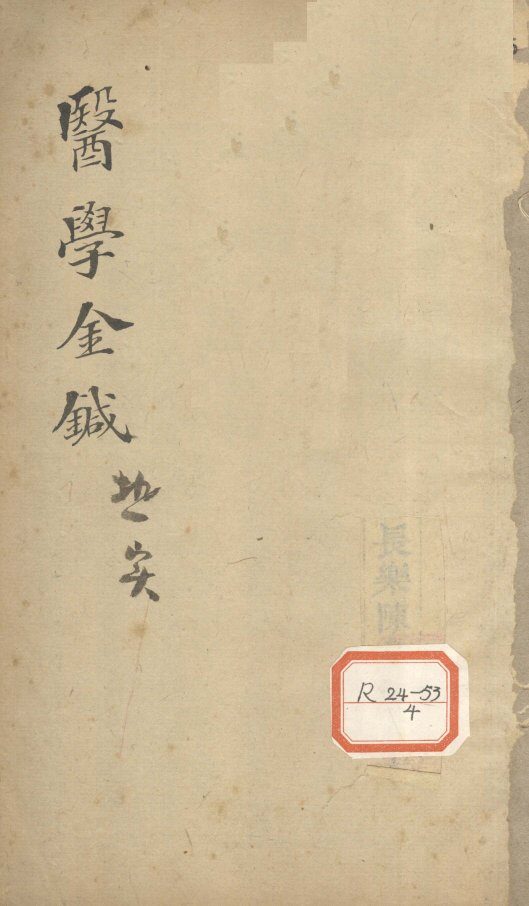 醫學金鍼
長樂陳
R 24-53
4